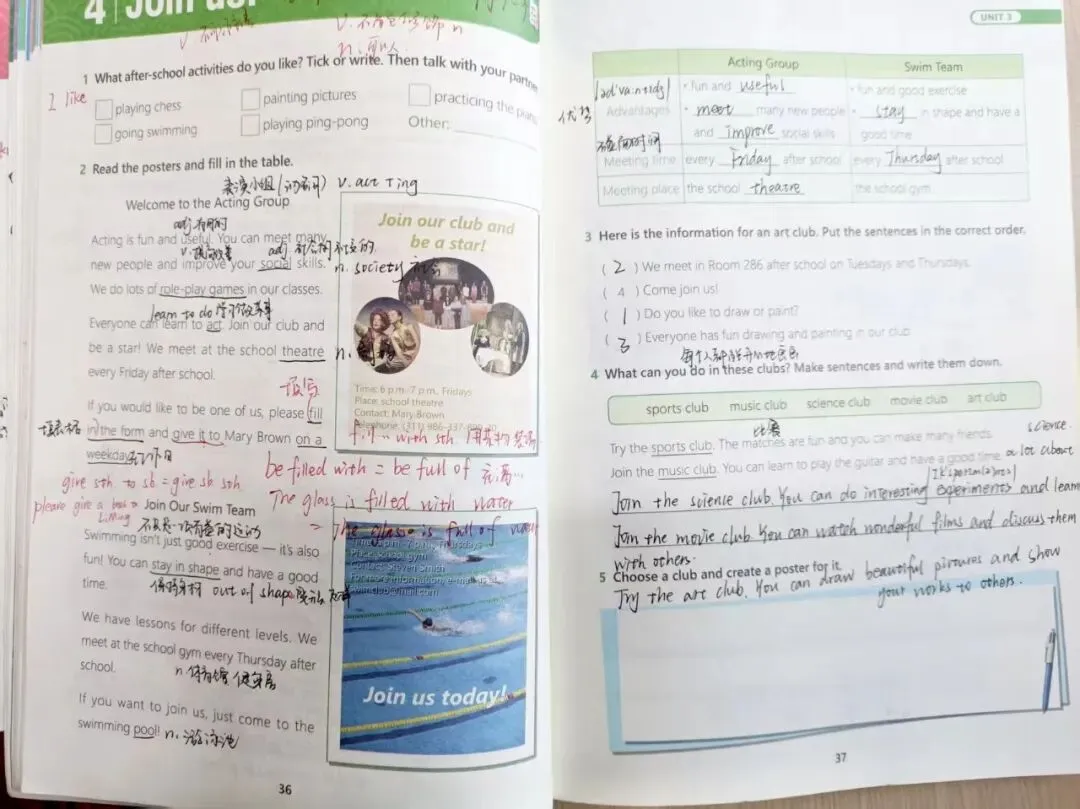 4 Join us!
v. 不定代词修饰 n
1 What after-school activities do you like? Tick or write. Then talk with your partner
I like
playing chess
painting pictures
practicing the piano
going swimming
playing ping-pong
Other:
2 Read the posters and fill in the table.
表演小组(动名词) v. act Ting
Welcome to the Acting Group
adj 有用的
Acting is fun and useful. You can meet many
new people and improve your social skills.
n. society 社会
We do lots of role-play games in our classes.
learn to do 学习做某事
Everyone can learn to act. Join our club and
be a star! We meet at the school theatre
every Friday after school.
填写
If you would like to be one of us, please fill
in the form and give it to Mary Brown on a
weekday.
填表格
工作日
Join our club and
be a star!
Time: 6 p.m.-7 p.m., Fridays
Place: school theatre
Contact: Mary Brown
fill... with sth
be filled with = be full of 充满...
give sth to sb = give sb sth
The glass is filled with water
= The glass is full of water
Join Our Swim Team
Swimming isn't just good exercise — it's also
fun! You can stay in shape and have a good
time.
保持身材 out of shape
We have lessons for different levels. We
meet at the school gym every Thursday after
school.
n 体育馆 健身房
If you want to join us, just come to the
swimming pool!
n. 游泳池
Place: school gym
Contact: Steven Smith
For more information, e-mail us at
Join us today!
36
UNIT 3
Acting Group
Swim Team
优势
Advantages
• fun and useful
• meet many new people
and improve social skills
• fun and good exercise
• stay in shape and have a
good time
Meeting time
every Friday after school
every Thursday after school
Meeting place
the school theatre
the school gym
3 Here is the information for an art club. Put the sentences in the correct order.
( 2 ) We meet in Room 286 after school on Tuesdays and Thursdays.
( 4 ) Come join us!
( 1 ) Do you like to draw or paint?
( 3 ) Everyone has fun drawing and painting in our club
4 What can you do in these clubs? Make sentences and write them down.
sports club music club science club movie club art club
比赛
Try the sports club. The matches are fun and you can make many friends.
science.
Join the music club. You can learn to play the guitar and have a good time.
a lot about
Join the science club. You can do interesting experiments and learn
Join the movie club. You can watch wonderful films and discuss them
with others.
5 Choose a club and create a poster for it.
Try the art club. You can draw beautiful pictures and show
your works to others.
37